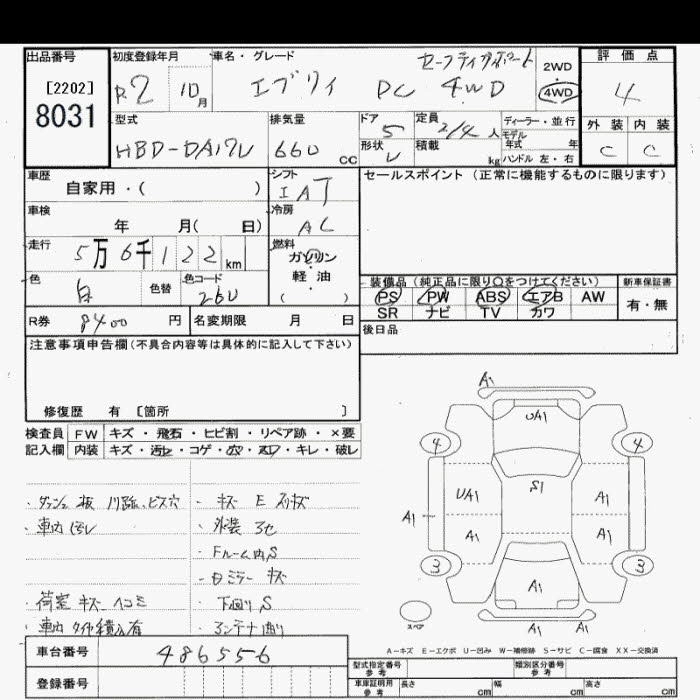 出品番号
[2202]
8031
初度登録年月
R2 10月
車名・グレード
セーフティサポート
エブリイ PC 4WD
2WD
4WD
評価点
4
外装 内装
C C
型式
HBD-DA17V
排気量
660 cc
ドア
5
形状
V
定員
2/4 人
積載
kg
ディーラー・並行
モデル
年式 年
ハンドル 左・右
車歴
自家用・( )
シフト
IAT
車検
年 月( 日)
冷房
AC
走行
5万6千122km
燃料
ガソリン
・
軽油
( )
色
白
色替
色コード
26U
R券 8400 円
名変期限 月 日
セールスポイント (正常に機能するものに限ります)
装備品 (純正品に限り○をつけてください)
PS PW ABS エアB AW
SR ナビ TV カワ
新車保証書
有・無
後日品
注意事項申告欄(不具合内容等は具体的に記入して下さい)
修復歴 有 [箇所 ]
検査員 FW キズ・飛石・ヒビ割・リペア跡・×要
記入欄 内装 キズ・汚レ・コゲ・穴・スレ・キレ・破レ
・ダッシュ板 ビス穴
・車内汚レ
・荷室キズ ヘコミ
・車内 タイヤ積込有
・キズ E スリキズ
・外装
・Fルーム内S
・ミラー キズ
・下回りS
車台番号 486556
登録番号
A1
UA1
4 4
S1
UA1 A1
A1
A1 A1
3 3
A1
A1 A1
スペア
A-キズ E-エクボ U-凹み W-補修跡 S-サビ C-腐食 XX-交換済
型式指定番号
参考
類別区分番号
参考
車庫証明用
参考
長さ cm 幅 cm 高さ cm